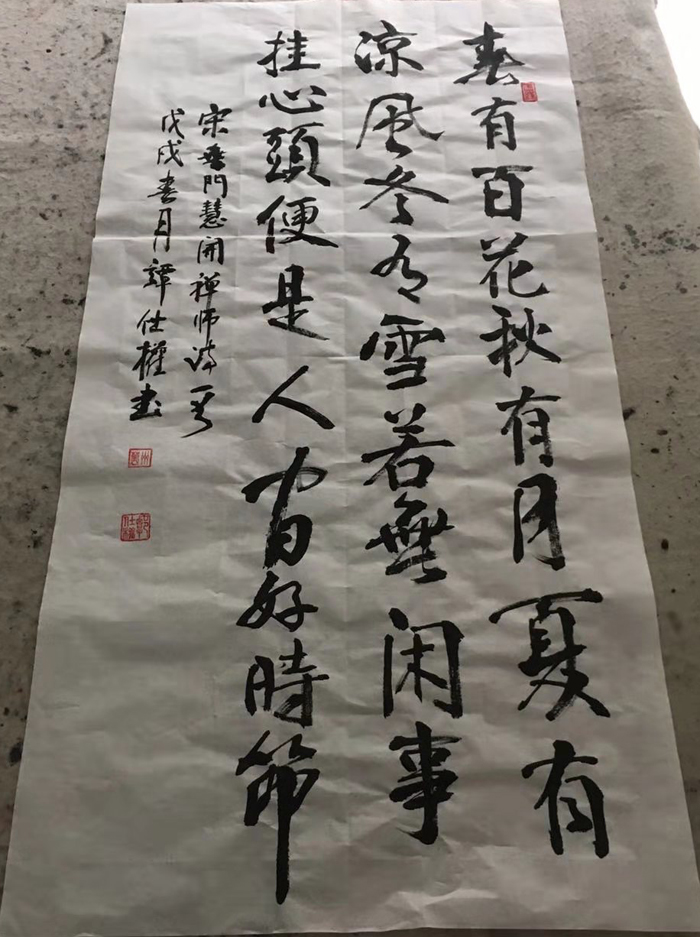 春有百花秋有月夏有
凉風冬有雪若無闲事
挂心頭便是人間好時節
宋無門慧開禪师诗一首
戊戌春月譚仕權书